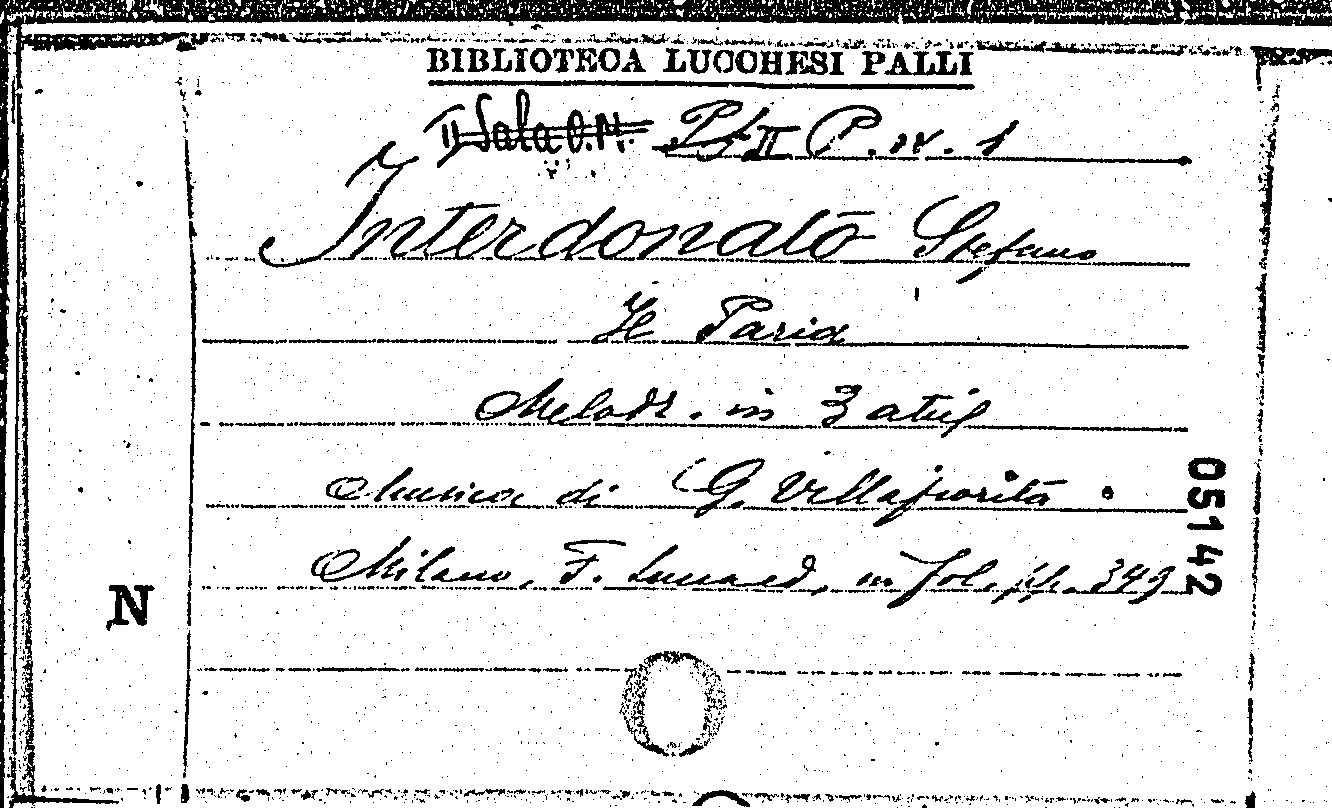 BIBLIOTECA LUCCHESI PALLI
II Sala O.N. Pf II P. IV. 1
Interdonato Stefano
Il Paria
Melodr. in 3 atti
Musica di G. Villafiorita.
Milano, F. Lucca ed, in fol. pp. 349
05142
N